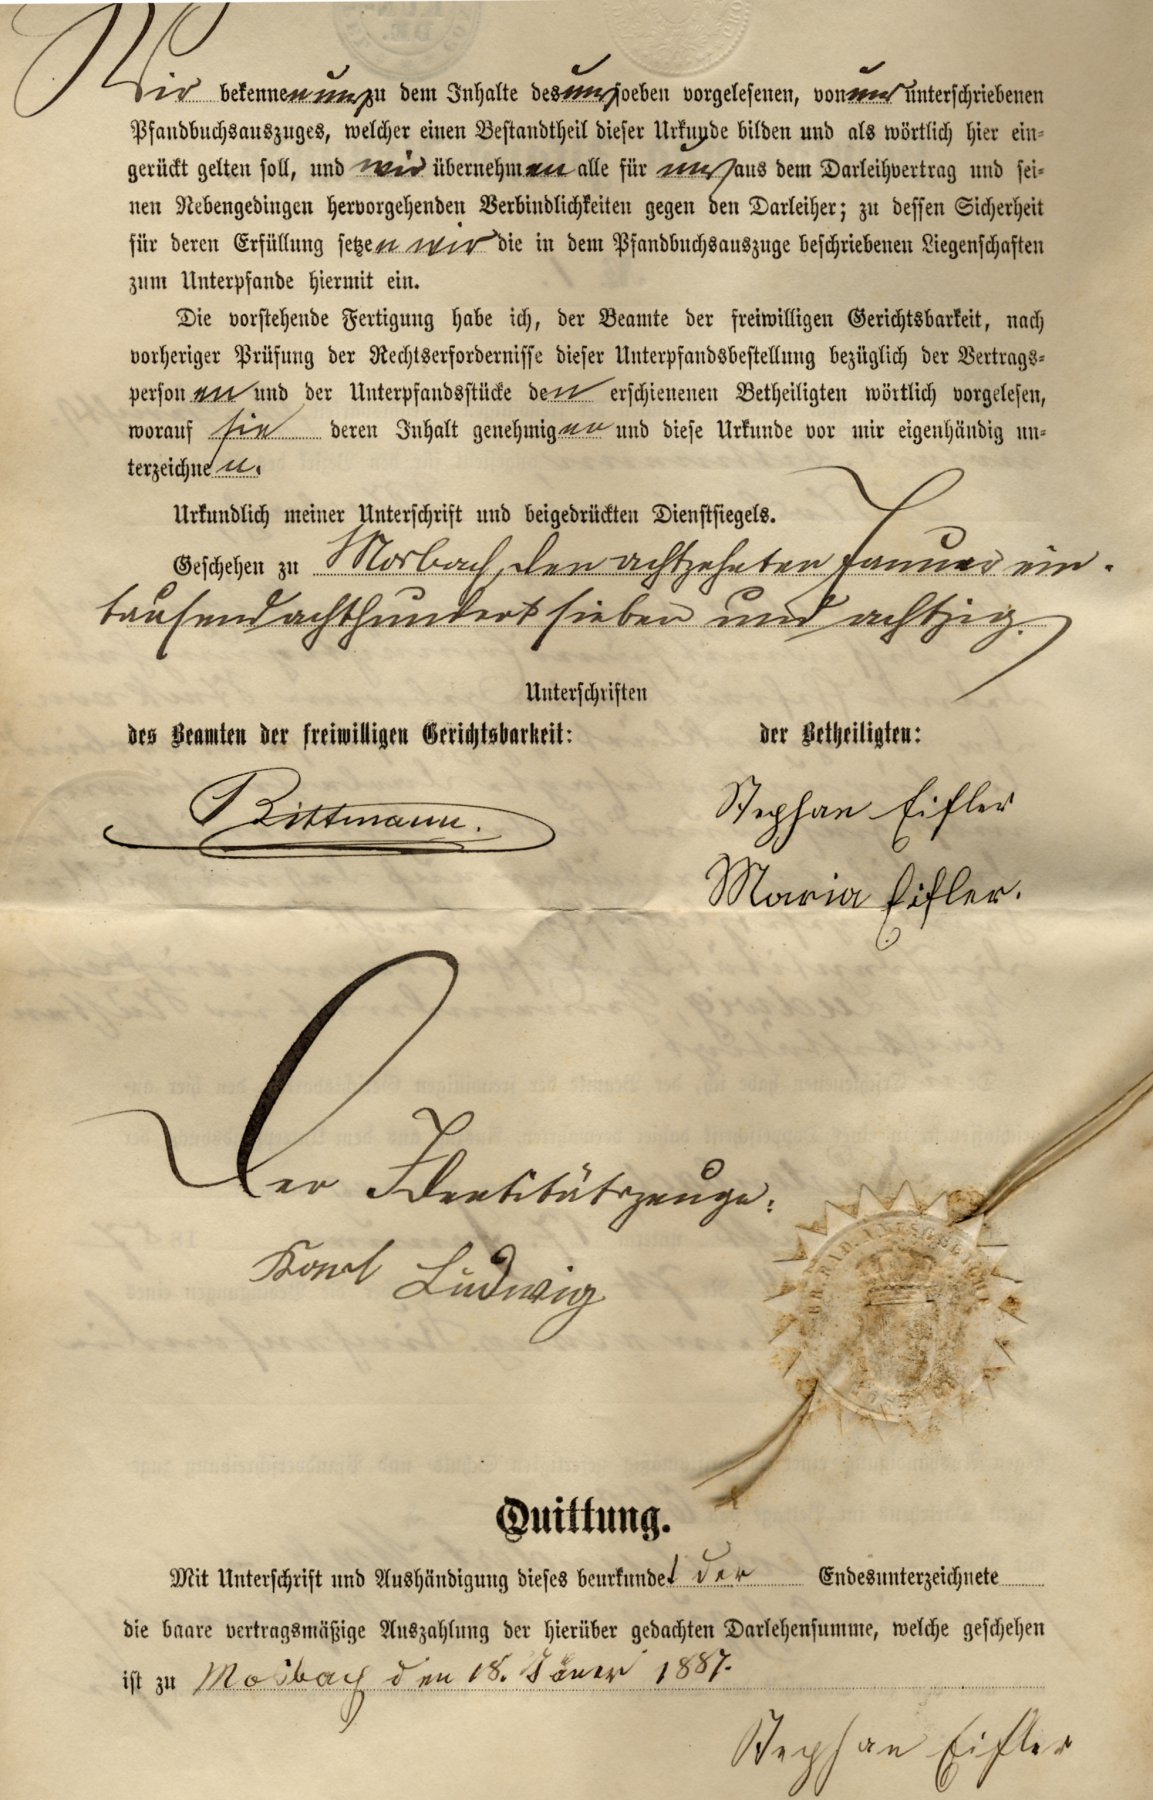 Wir bekennen uns zu dem Inhalte des uns soeben vorgelesenen, von uns unterschriebenen
Pfandbuchsauszuges, welcher einen Bestandtheil dieser Urkunde bilden und als wörtlich hier ein-
gerückt gelten soll, und wir übernehmen alle für uns aus dem Darleihvertrag und sei-
nen Nebengedingen hervorgehenden Verbindlichkeiten gegen den Darleiher; zu dessen Sicherheit
für deren Erfüllung setzen wir die in dem Pfandbuchsauszuge beschriebenen Liegenschaften
zum Unterpfande hiermit ein.
Die vorstehende Fertigung habe ich, der Beamte der freiwilligen Gerichtsbarkeit, nach
vorheriger Prüfung der Rechtserfordernisse dieser Unterpfandsbestellung bezüglich der Vertrags-
personen und der Unterpfandsstücke den erschienenen Betheiligten wörtlich vorgelesen,
worauf sie deren Inhalt genehmigen und diese Urkunde vor mir eigenhändig un-
terzeichnen.
Urkundlich meiner Unterschrift und beigedrückten Dienstsiegels.
Geschehen zu Mosbach, den achtzehnten Januar ein-
tausend achthundert sieben und achtzig.
Unterschriften
des Beamten der freiwilligen Gerichtsbarkeit: der Betheiligten:
Bittmann. Stephan Eifler
Maria Eifler.
Der Identitätszeuge:
Karl Ludwig
Quittung.
Mit Unterschrift und Aushändigung dieses beurkundet der Endesunterzeichnete
die baare vertragsmäßige Auszahlung der hierüber gedachten Darlehensumme, welche geschehen
ist zu Mosbach den 18. Jäner 1887.
Stephan Eifler